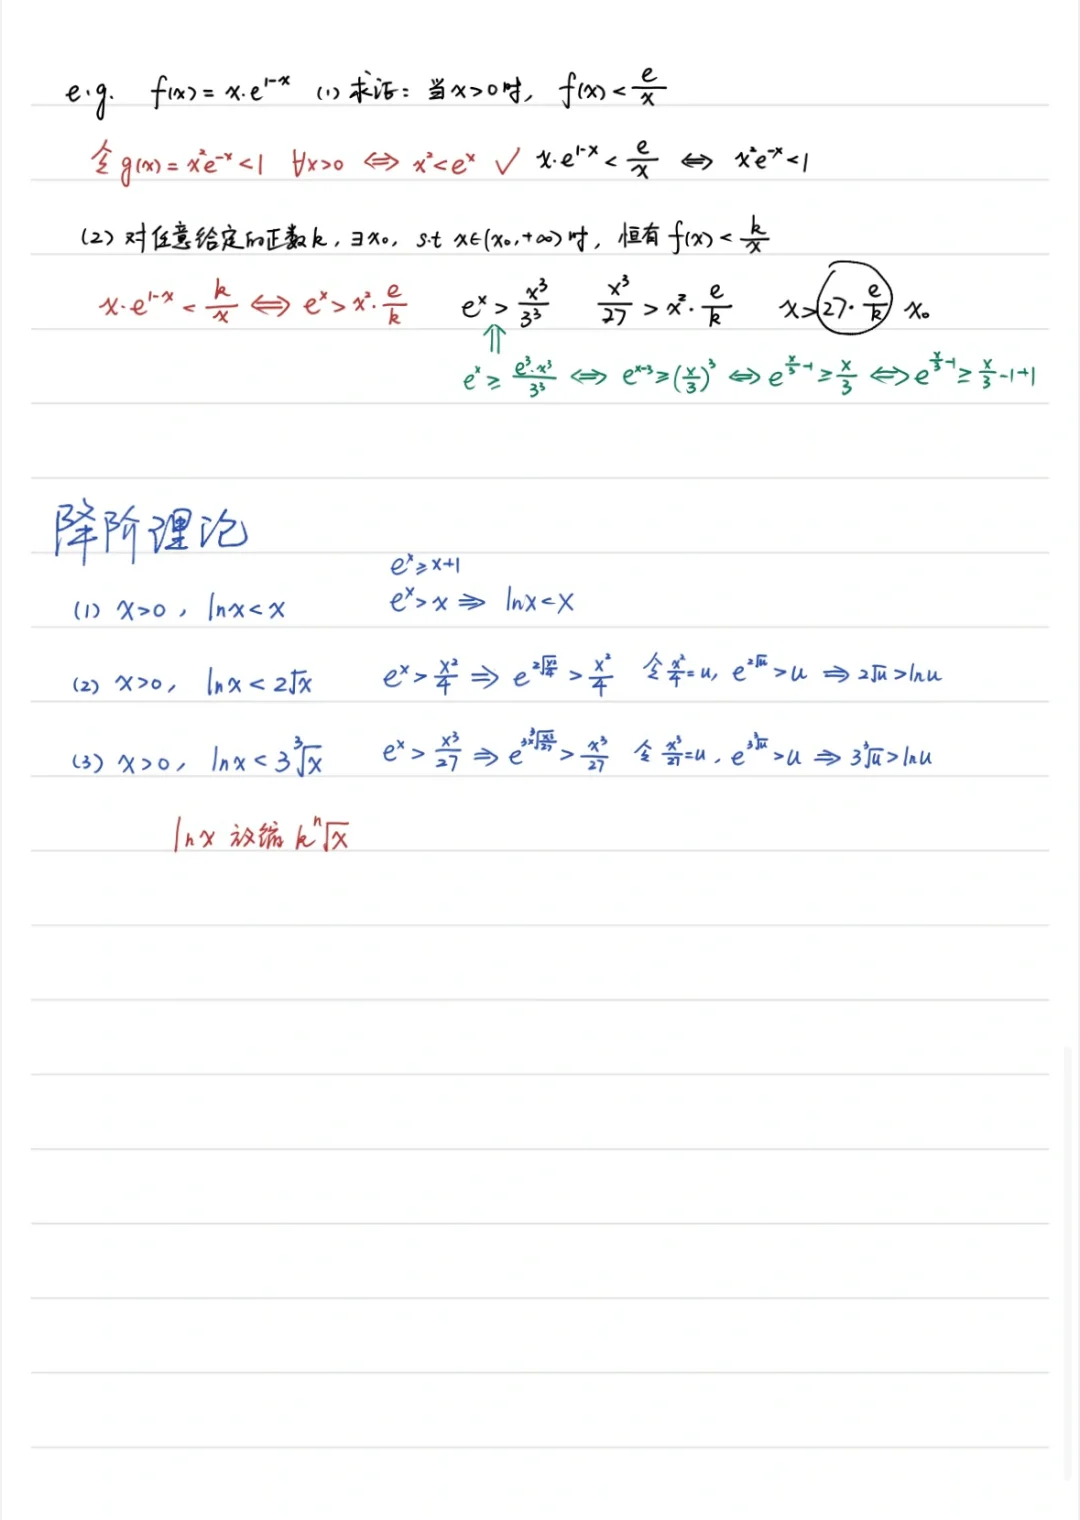 e.g. f(x)=x·e^{1-x} (1) 求证：当x>0时，f(x)<e/x
令g(x)=x²e^{-x}<1 ∀x>0 ⇔ x²<e^x ✓ x·e^{1-x}<e/x ⇔ x²e^{-x}<1
(2) 对任意给定的正数k，∃x₀，s.t x∈(x₀,+∞)时，恒有f(x)<k/x
x·e^{1-x}<k/x ⇔ e^x>x²·e/k e^x>x³/3³ x³/27>x²·e/k x>27·e/k x₀
⇑
e^x≥e³·x³/3³ ⇔ e^{x-3}≥(x/3)³ ⇔ e^{x/3-1}≥x/3 ⇔ e^{x/3-1}≥x/3-1+1
降阶理论
e^x≥x+1
(1) x>0，lnx<x e^x>x ⇒ lnx<x
(2) x>0，lnx<2√x e^x>x²/4 ⇒ e^{2√(x²/4)}>x²/4 令x²/4=u, e^{2√u}>u ⇒ 2√u>lnu
(3) x>0，lnx<3∛x e^x>x³/27 ⇒ e^{3×∛(x³/27)}>x³/27 令x³/27=u，e^{3∛u}>u ⇒ 3∛u>lnu
lnx 放缩 k ⁿ√x